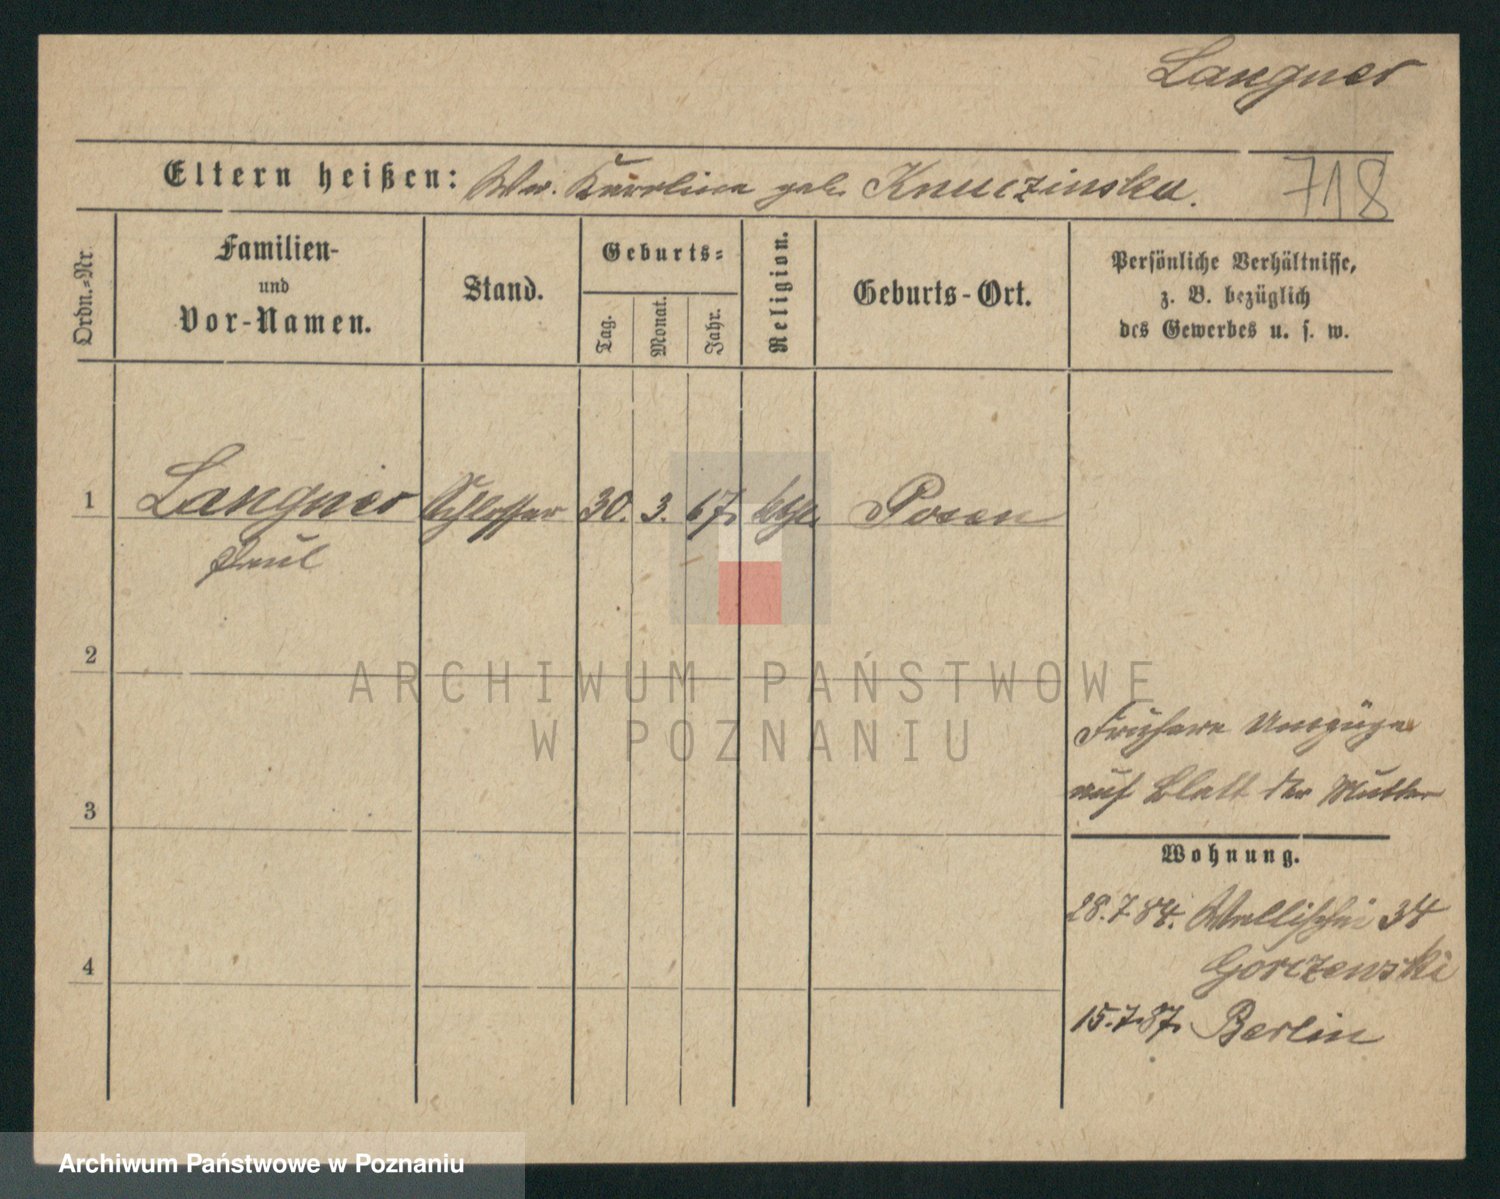 Langner
Eltern heißen: Ww. Karolina geb. Knuczinska.
718
Ordn.-Nr.
Familien-
und
Vor-Namen.
Stand.
Geburts-
Tag.
Monat.
Jahr.
Religion.
Geburts-Ort.
Persönliche Verhältnisse,
z. B. bezüglich
des Gewerbes u. s. w.
1 Langner Schlosser 30. 3. 67. kth. Posen
Paul
2
ARCHIWUM PAŃSTWOWE
W POZNANIU
Frühere Umzüge
auf Blatt der Mutter
3
Wohnung.
28.7.84. Wallischei 34
Gorczewski
4
15.7.87. Berlin
Archiwum Państwowe w Poznaniu